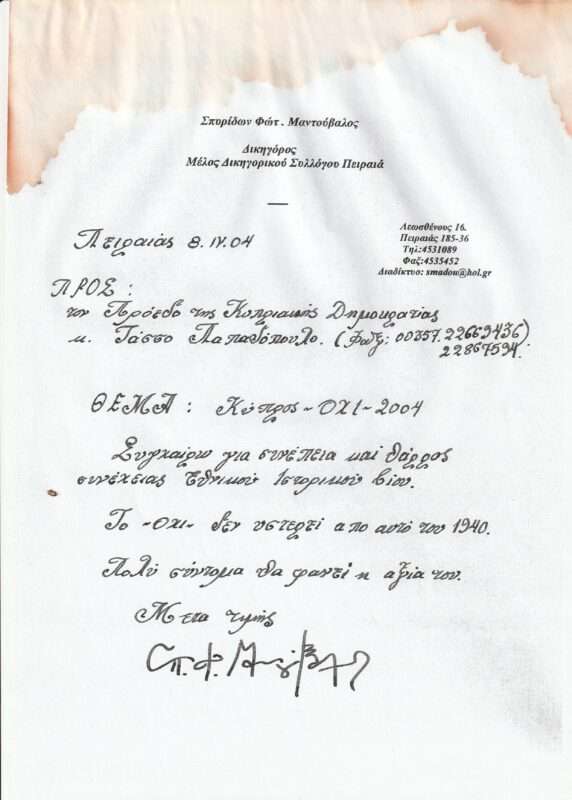 Σπυρίδων Φώτ . Μαντούβαλος
Δικηγόρος
Μέλος Δικηγορικού Συλλόγου Πειραιά
Λεωσθένους 16.
Πειραιάς 185-36
Τηλ:4531089
Φαξ:4535452
Διαδίκτυο: smadou@hol.gr
Πειραιάς 8.IV.04
ΠΡΟΣ :
τον Πρόεδο της Κυπριακής Δημοκρατίας
κ. Τάσσο Παπαδόπουλο. (Φαξ: 00357.22669436)
22867594.
ΘΕΜΑ : Κύπρος - ΟΧΙ - 2004
Συγχαίρω για συνέπεια και θάρρος
συνέχειας Εθνικού Ιστορικού βίου.
Το -ΟΧΙ- δεν υστερεί απο αυτό του 1940.
Πολύ σύντομα θα φανεί η αξία του.
Μετα τιμής
Σπ. Φ.